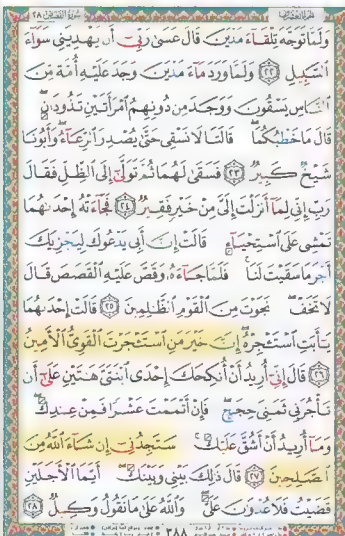 سورة القصص ٢٨
وَلَمَّا تَوَجَّهَ تِلْقَآءَ مَدْيَنَ قَالَ عَسَىٰ رَبِّىٓ أَن يَهْدِيَنِى سَوَآءَ
ٱلسَّبِيلِ ٢٢ وَلَمَّا وَرَدَ مَآءَ مَدْيَنَ وَجَدَ عَلَيْهِ أُمَّةً مِّنَ
ٱلنَّاسِ يَسْقُونَ وَوَجَدَ مِن دُونِهِمُ ٱمْرَأَتَيْنِ تَذُودَانِ
قَالَ مَا خَطْبُكُمَا قَالَتَا لَا نَسْقِى حَتَّىٰ يُصْدِرَ ٱلرِّعَآءُ وَأَبُونَا
شَيْخٌ كَبِيرٌ ٢٣ فَسَقَىٰ لَهُمَا ثُمَّ تَوَلَّىٰٓ إِلَى ٱلظِّلِّ فَقَالَ
رَبِّ إِنِّى لِمَآ أَنزَلْتَ إِلَىَّ مِنْ خَيْرٍ فَقِيرٌ ٢٤ فَجَآءَتْهُ إِحْدَىٰهُمَا
تَمْشِى عَلَى ٱسْتِحْيَآءٍ قَالَتْ إِنَّ أَبِى يَدْعُوكَ لِيَجْزِيَكَ
أَجْرَ مَا سَقَيْتَ لَنَا فَلَمَّا جَآءَهُۥ وَقَصَّ عَلَيْهِ ٱلْقَصَصَ قَالَ
لَا تَخَفْ نَجَوْتَ مِنَ ٱلْقَوْمِ ٱلظَّٰلِمِينَ ٢٥ قَالَتْ إِحْدَىٰهُمَا
يَٰٓأَبَتِ ٱسْتَـْٔجِرْهُ إِنَّ خَيْرَ مَنِ ٱسْتَـْٔجَرْتَ ٱلْقَوِىُّ ٱلْأَمِينُ
٢٦ قَالَ إِنِّىٓ أُرِيدُ أَنْ أُنكِحَكَ إِحْدَى ٱبْنَتَىَّ هَٰتَيْنِ عَلَىٰٓ أَن
تَأْجُرَنِى ثَمَٰنِىَ حِجَجٍ فَإِنْ أَتْمَمْتَ عَشْرًا فَمِنْ عِندِكَ
وَمَآ أُرِيدُ أَنْ أَشُقَّ عَلَيْكَ سَتَجِدُنِىٓ إِن شَآءَ ٱللَّهُ مِنَ
ٱلصَّٰلِحِينَ ٢٧ قَالَ ذَٰلِكَ بَيْنِى وَبَيْنَكَ أَيَّمَا ٱلْأَجَلَيْنِ
قَضَيْتُ فَلَا عُدْوَٰنَ عَلَىَّ وَٱللَّهُ عَلَىٰ مَا نَقُولُ وَكِيلٌ ٢٨
٣٨٨